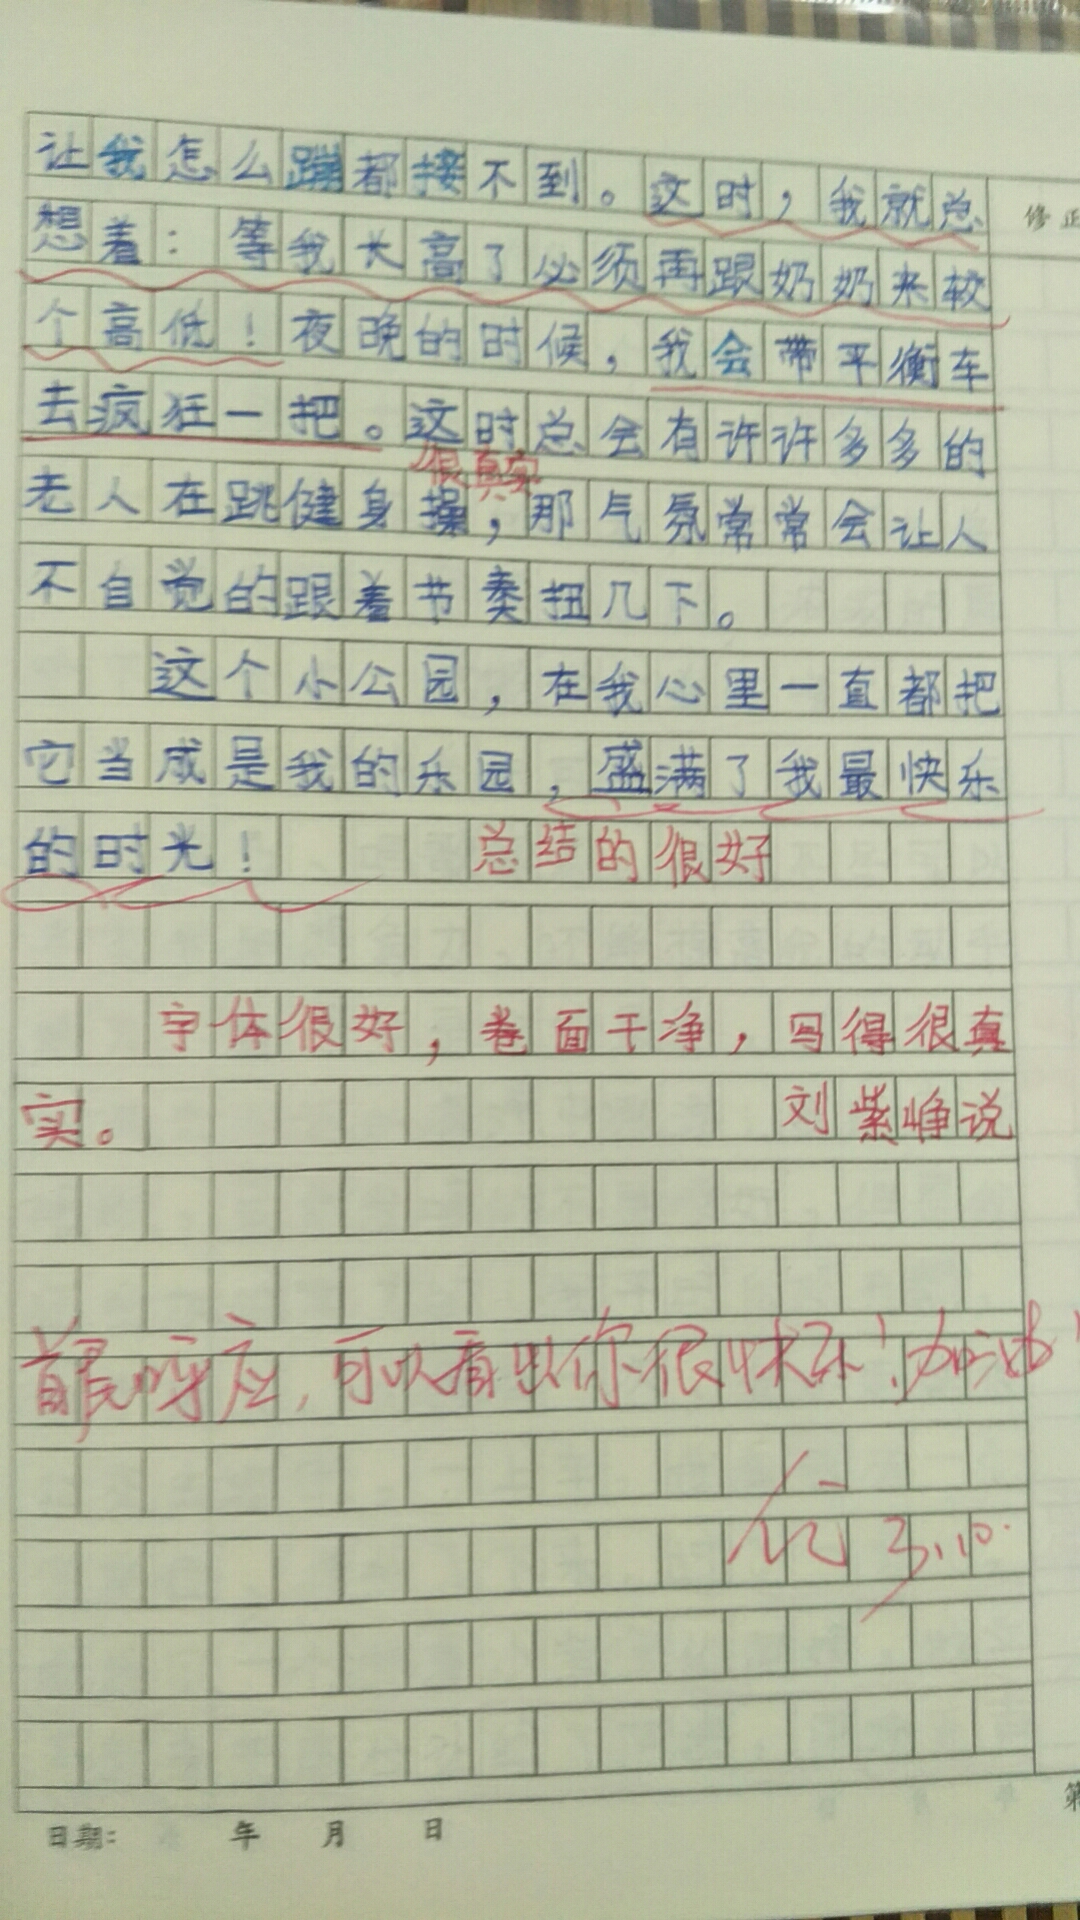 让我怎么蹦都接不到。这时，我就总
修正
想着：等我长高了必须再跟奶奶来较
个高低！夜晚的时候，我会带平衡车
去疯狂一把。这时总会有许许多多的
很真实
老人在跳健身操，那气氛常常会让人
不自觉的跟着节奏扭几下。
这个小公园，在我心里一直都把
它当成是我的乐园，盛满了我最快乐
的时光！ 总结的很好
字体很好，卷面干净，写得很真
实。 刘紫峥说
首尾呼应，可以看出你很快乐！加油！
3.10.
第
日期： 年 月 日